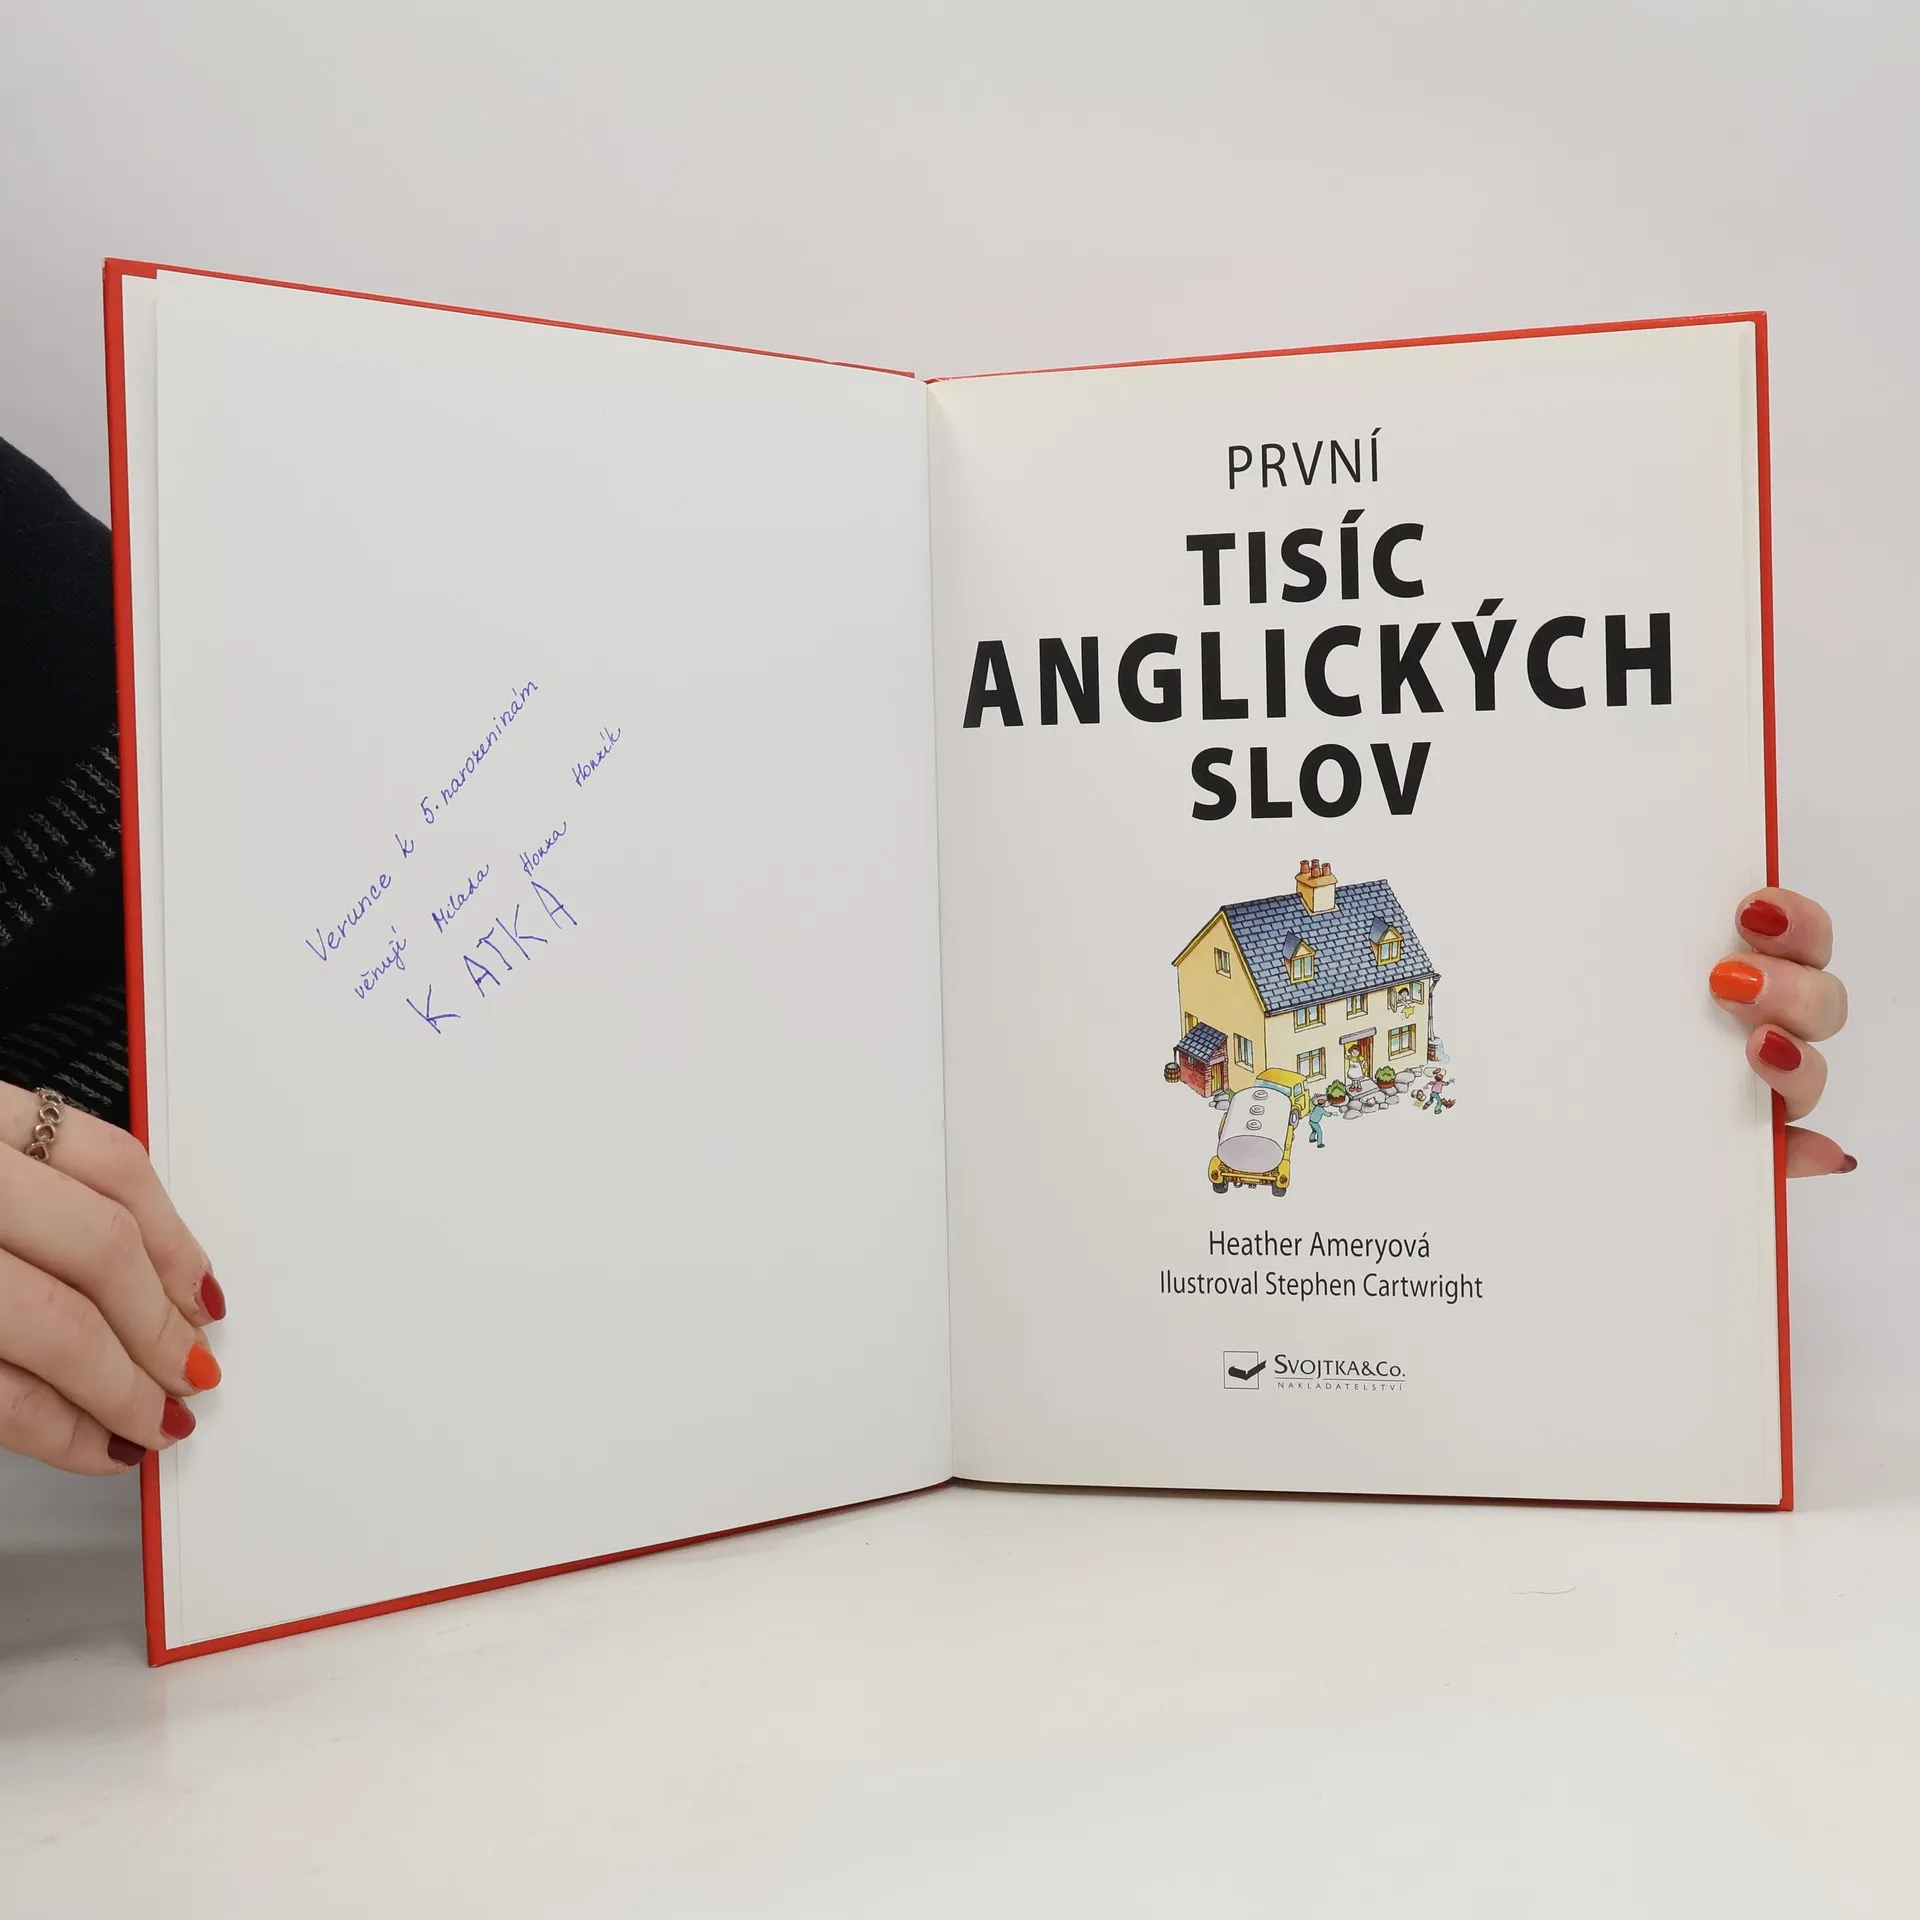 Verunce k 5. narozeninám
věnují Milada Honza Honzík
KATKA
PRVNÍ
TISÍC
ANGLICKÝCH
SLOV
Heather Ameryová
Ilustroval Stephen Cartwright
SVOJTKA&CO.
NAKLADATELSTVÍ